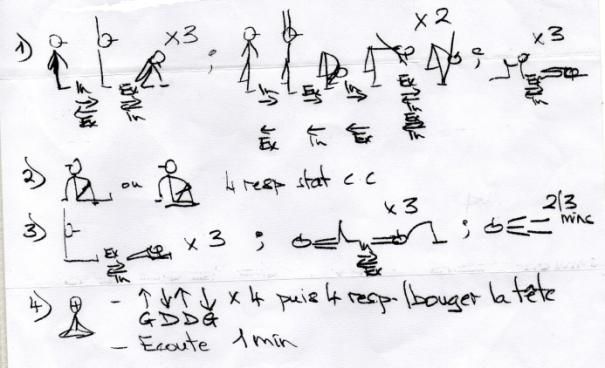 1) x3 ; x2 ; x3
In Ex In Ex In Ex Ex
Ex In In In
Ex In Ex
2) ou 4 resp stat c.c
3) x3 ; x3 ; 2/3 mins
Ex In In Ex
4) - ↑ ↓ ↑ ↓ x 4 puis 4 resp. / bouger la tête
G D D G
- Ecoute 1 min